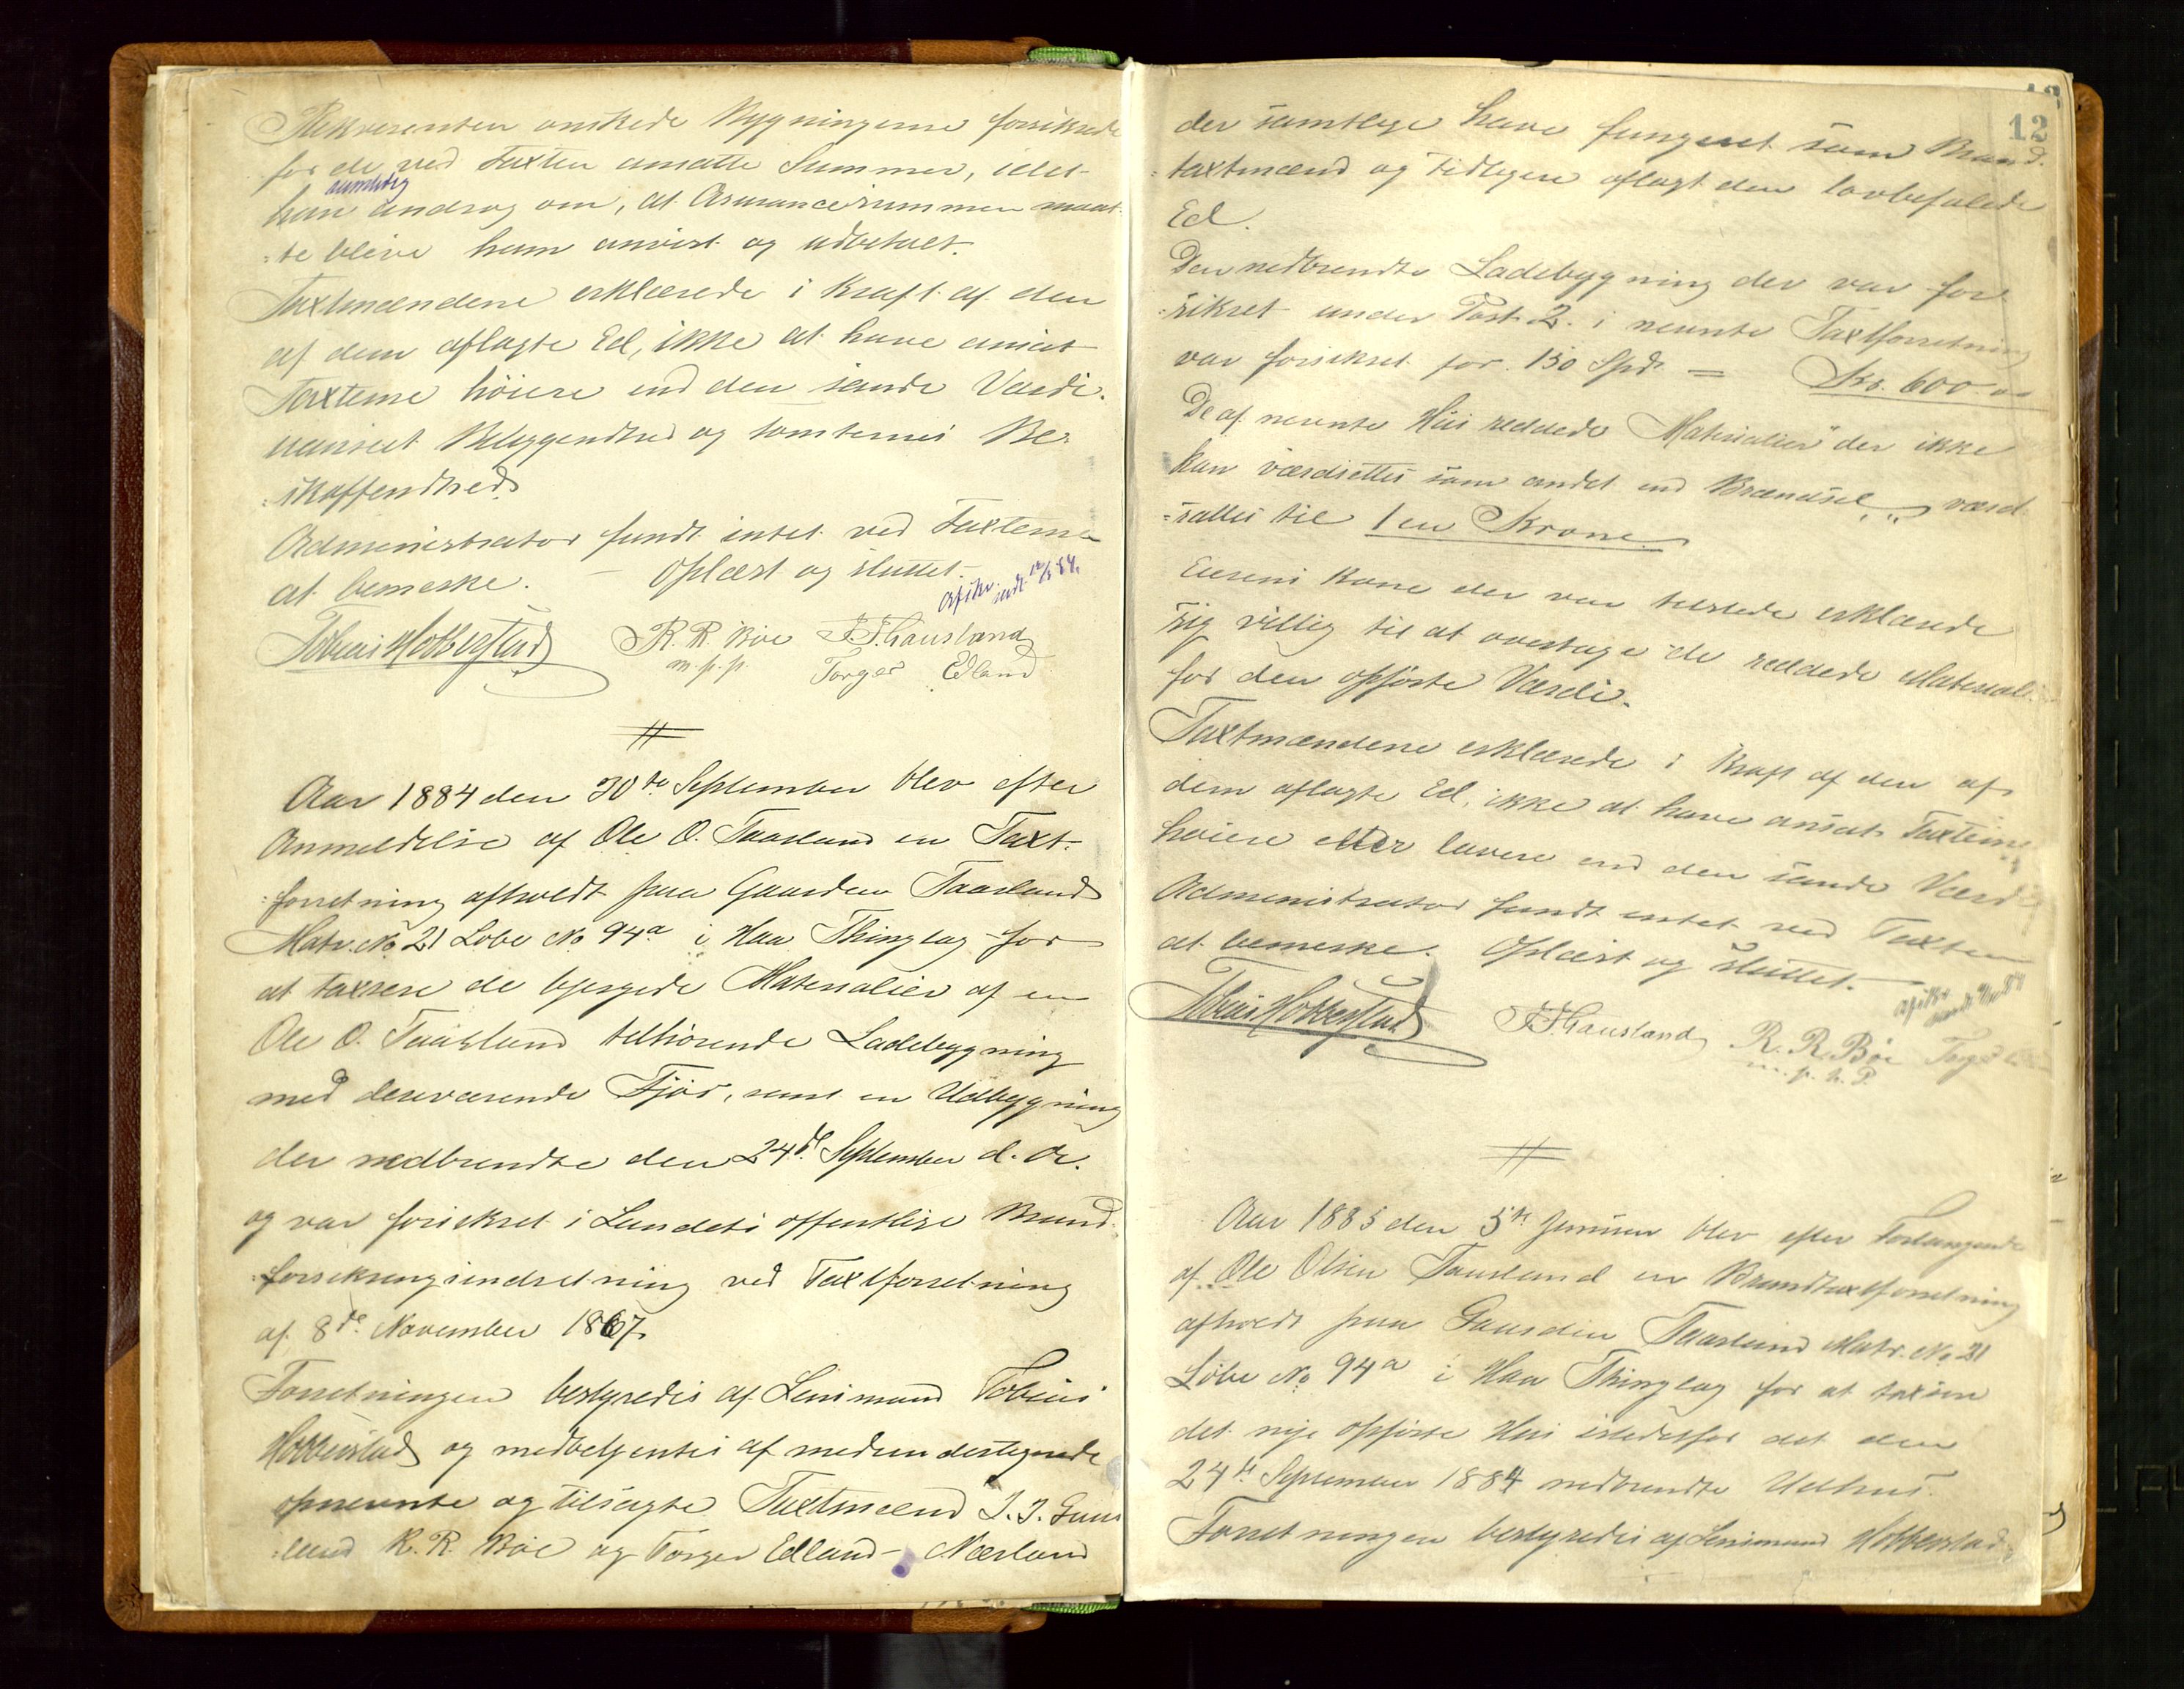 Rekvirenten ønskede Bygningerne forsikrede
for de ved Taxten ansatte Summer, idet
han samtidig androg om, at Assurancesummen maat-
:te blive ham anvist og udbetalt.
Taxtmændene erklærede i Kraft af den
af dem aflagte Ed, ikke at have ansat
Taxterne høiere end den sande Værdi.
uanseet Beliggenhed og Tomternes Be-
:skaffenhed.
Administrator fandt intet ved Taxterne
at bemerke. – Oplæst og sluttet.
Afskr. sendt 12/5 84.
Tobias Hobberstad R. R. Bøe J. J. Gausland
m. p. p. Torger Edland
Aar 1884 den 30te September blev efter
Anmeldelse af Ole O. Taarland en Taxt-
:forretning afholdt paa Gaarden Taarland
Matr. No 21 Løbe No 94a i Haa Thinglag for
at taxere de bjergede Materialier af en
Ole O. Taarland tilhørende Ladebygning
med derværende Fjøs, samt en Udbygning
der nedbrendte den 24de September d. A.
og var forsikret i Landets offentlige Brand-
:forsikringsindretning ved Taxtforretning
af 8de November 1867.
Forretningen bestyredes af Lensmand Tobias
Hobberstad og medbetjentes af medundertegnede
opnevnte og tilsagte Taxtmænd J. J. Gaus
:land R. R. Bøe og Torger Edland – Nærland
12
der samtlige have fungeret som Brand-
:taxtmænd og tidligere aflagt den lovbefalede
Ed.
Den nedbrendte Ladebygning der var for
:sikret under Post 2. i nevnte Taxtforretning
var forsikret for 150 Spd. = Kr. 600.00
De af nevnte Hus reddede Materialier der ikke
kan værdsettes som andet end Brændsel, værd-
:sattes til 1 en Krone.
Eierens Kone der var tilstede erklærede
sig villig til at overtage de reddede Material
for den opførte Værdi.
Taxtmændene erklærede i Kraft af den af
dem aflagte Ed, ikke at have ansat Taxterne
høiere eller lavere end den sande Værdi
Administrator fandt intet ved Taxten
at bemerke. Oplæst og sluttet.
Afskr. sendt 84
Tobias Hobberstad J. J. Gausland R. R. Bøe Torger
m. p. p.
Aar 1885 den 5te Januar blev efter Forlangende
af Ole Olsen Taarland en Brandtaxtforretning
afholdt paa Gaarden Taarland Matr. No 21
Løbe No 94a i Haa Thinglag for at taxere
det nye opførte Hus istedetfor det den
24de September 1884 nedbrendte Udhus.
Forretningen bestyredes af Lensmand Hobberstad